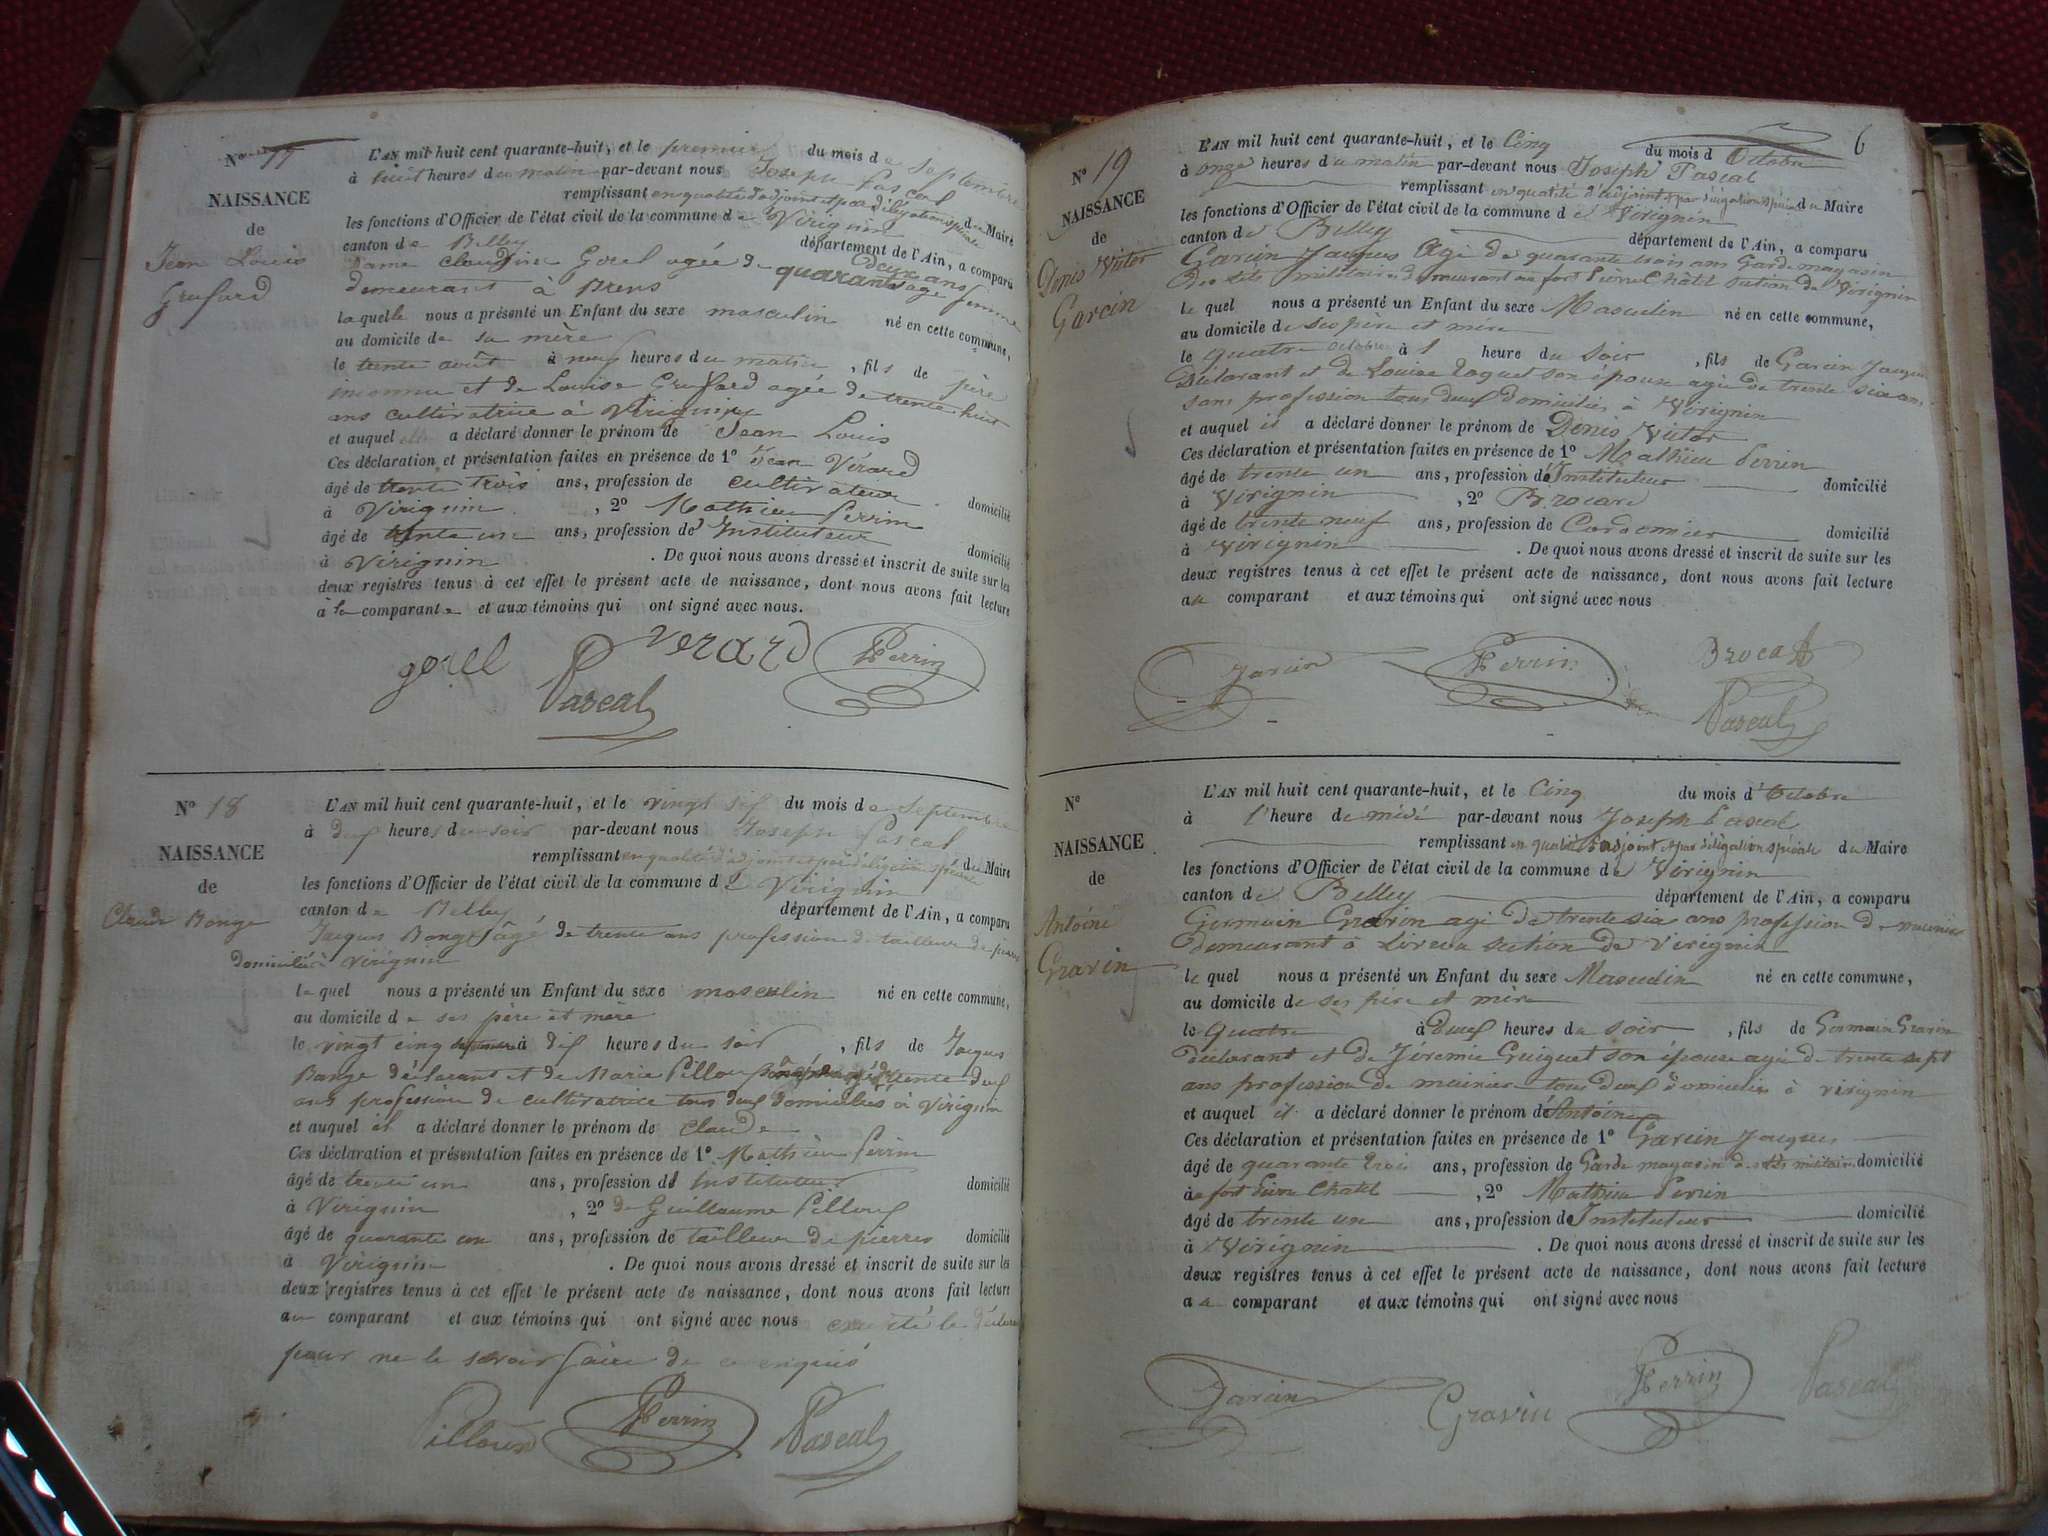 N° 17
NAISSANCE
de
Jean Louis
Grufard
L'AN mil huit cent quarante-huit, et le premier du mois de Septembre
à huit heures du matin par-devant nous Joseph Pascal
remplissant en qualité d'adjoint et par délégation spéciale du Maire
les fonctions d'Officier de l'état civil de la commune de Virignin
canton de Belley département de l'Ain, a comparu
Dame Claudine Gorel agée de quarante deux ans sage femme
demeurant à Brens
laquelle nous a présenté un Enfant du sexe masculin né en cette commune,
au domicile de sa mère
le trente août à neuf heures du matin, fils de père
inconnu et de Louise Grufard agée de trente huit
ans cultivatrice à Virignin
et auquel elle a déclaré donner le prénom de Jean Louis
Ces déclaration et présentation faites en présence de 1° Jean Vérard
âgé de trente trois ans, profession de cultivateur domicilié
à Virignin, 2° Mathieu Perrin
âgé de trente un ans, profession de Instituteur domicilié
à Virignin. De quoi nous avons dressé et inscrit de suite sur les
deux registres tenus à cet effet le présent acte de naissance, dont nous avons fait lecture
à la comparante et aux témoins qui ont signé avec nous.
gorel verard Perrin
Pascal
N° 18
NAISSANCE
de
Claude Bonge
L'AN mil huit cent quarante-huit, et le vingt six du mois de Septembre
à deux heures du soir par-devant nous Joseph Pascal
remplissant en qualité d'adjoint et par délégation spéciale du Maire
les fonctions d'Officier de l'état civil de la commune de Virignin
canton de Belley département de l'Ain, a comparu
Jacques Bonge âgé de trente ans profession de tailleur de pierres
domicilié à Virignin
lequel nous a présenté un Enfant du sexe masculin né en cette commune,
au domicile de ses père et mère
le vingt cinq septembre à dix heures du soir, fils de Jacques
Bonge déclarant et de Marie Pilloux son épouse agée de trente deux
ans profession de cultivatrice tous deux domiciliés à Virignin
et auquel il a déclaré donner le prénom de Claude
Ces déclaration et présentation faites en présence de 1° Mathieu Perrin
âgé de trente un ans, profession de Instituteur domicilié
à Virignin, 2° de Guillaume Pilloux
âgé de quarante un ans, profession de tailleur de pierres domicilié
à Virignin. De quoi nous avons dressé et inscrit de suite sur les
deux registres tenus à cet effet le présent acte de naissance, dont nous avons fait lecture
au comparant et aux témoins qui ont signé avec nous
pour ne le savoir faire de ce enquis
Pilloux Perrin Pascal
6
N° 19
NAISSANCE
de
Denis Victor
Garcin
L'AN mil huit cent quarante-huit, et le Cinq du mois d Octobre
à onze heures du matin par-devant nous Joseph Pascal
remplissant en qualité d'adjoint et par délégation spéciale du Maire
les fonctions d'Officier de l'état civil de la commune de Virignin
canton de Belley département de l'Ain, a comparu
Garcin Jacques agé de quarante trois ans Garde magasin
des lits militaires demeurant au fort Pierre Châtel section de Virignin
lequel nous a présenté un Enfant du sexe Masculin né en cette commune,
au domicile de ses père et mère
le quatre octobre à 1 heure du soir, fils de Garcin Jacques
Déclarant et de Louise Laquet son épouse agée de trente six ans
sans profession tous deux domiciliés à Virignin
et auquel il a déclaré donner le prénom de Denis Victor
Ces déclaration et présentation faites en présence de 1° Mathieu Perrin
âgé de trente un ans, profession d'Instituteur domicilié
à Virignin, 2° Brocard
âgé de trente neuf ans, profession de Cordonnier domicilié
à Virignin. De quoi nous avons dressé et inscrit de suite sur les
deux registres tenus à cet effet le présent acte de naissance, dont nous avons fait lecture
au comparant et aux témoins qui ont signé avec nous
Garcin Perrin Brocard
Pascal
N°
NAISSANCE
de
Antoine
Gravin
L'AN mil huit cent quarante-huit, et le Cinq du mois d'Octobre
à l'heure de midi par-devant nous Joseph Pascal
remplissant en qualité d'adjoint et par délégation spéciale du Maire
les fonctions d'Officier de l'état civil de la commune de Virignin
canton de Belley département de l'Ain, a comparu
Germain Gravin agé de trente six ans profession de
demeurant à section de Virignin
lequel nous a présenté un Enfant du sexe Masculin né en cette commune,
au domicile de ses père et mère
le Quatre à deux heures du soir, fils de Germain Gravin
déclarant et de Jéremie Guiguet son épouse agée de trente sept
ans profession de tous deux domiciliés à virignin
et auquel il a déclaré donner le prénom d'Antoine
Ces déclaration et présentation faites en présence de 1° Garcin Jacques
âgé de quarante trois ans, profession de Garde magasin des lits militaires domicilié
à fort Pierre Chatel, 2° Mathieu Perrin
âgé de trente un ans, profession d'Instituteur domicilié
à Virignin. De quoi nous avons dressé et inscrit de suite sur les
deux registres tenus à cet effet le présent acte de naissance, dont nous avons fait lecture
au comparant et aux témoins qui ont signé avec nous
Garcin Gravin Perrin Pascal